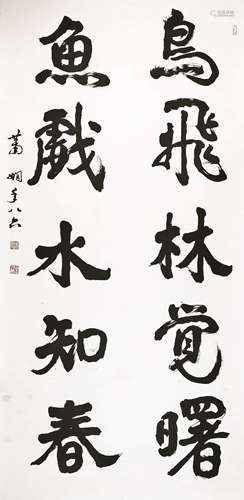 鳥飛林覚曙
魚戲水知春
萧娴年八六